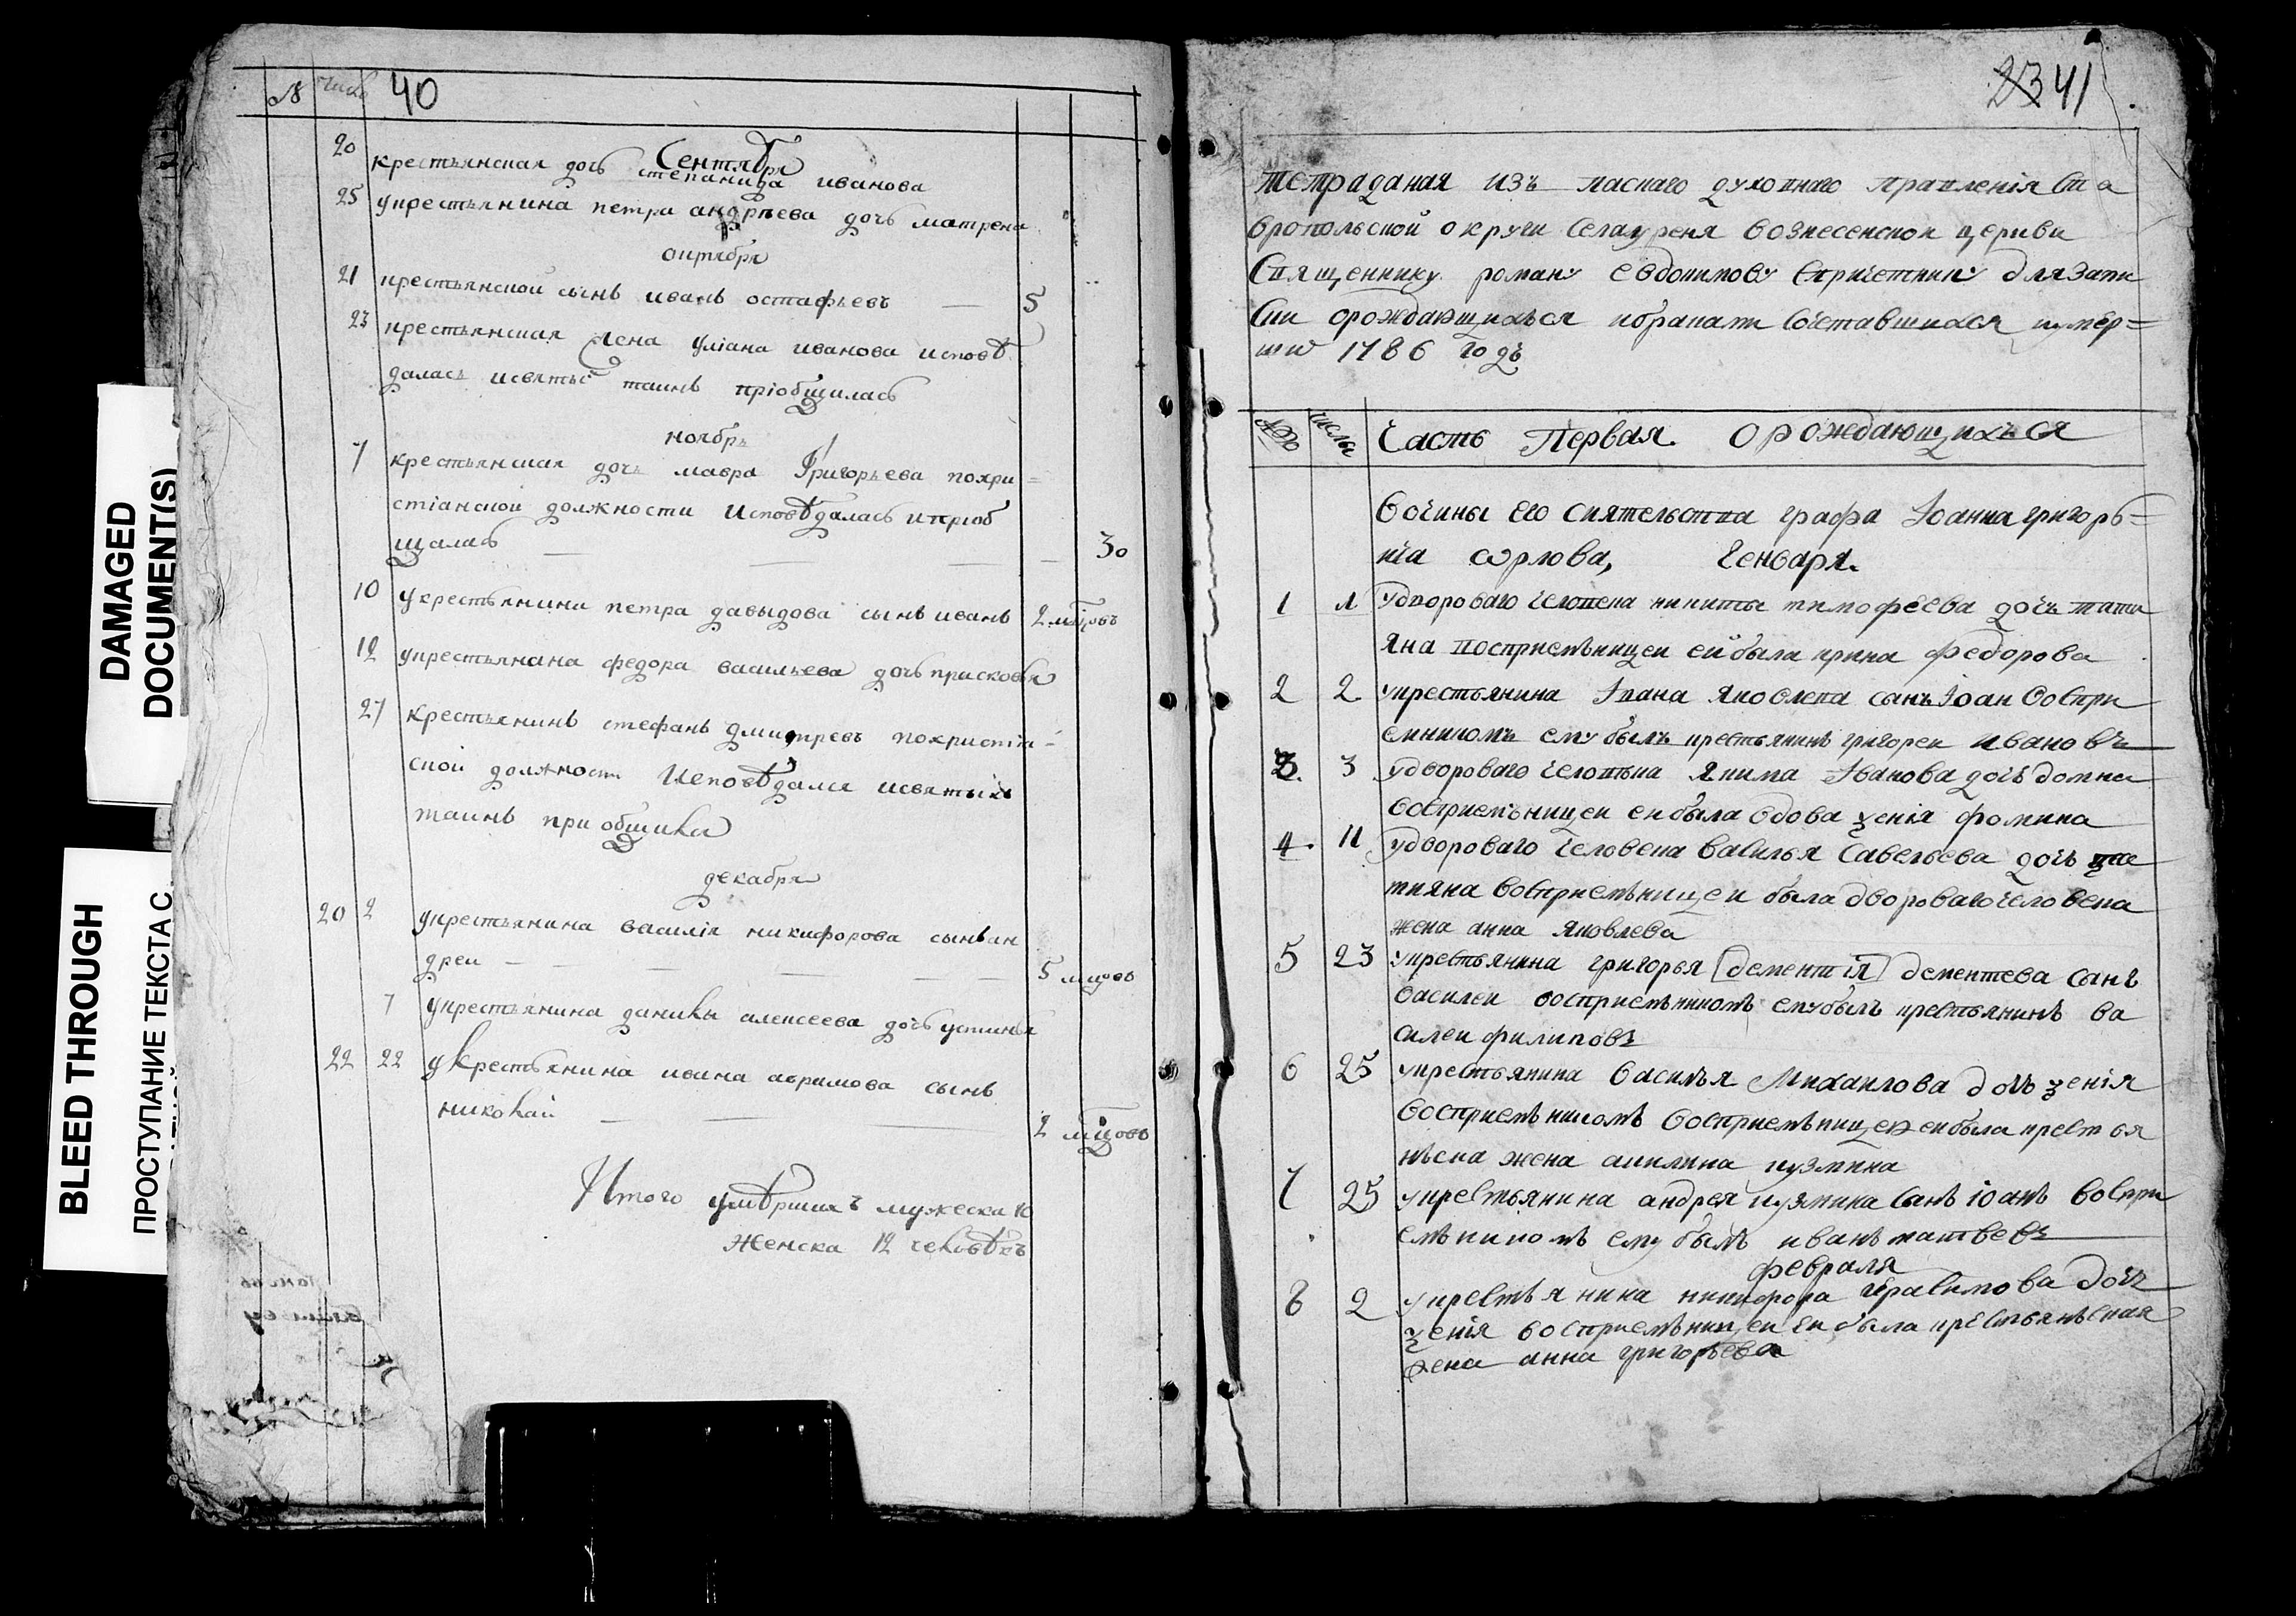 DAMAGED
DOCUMENT(S)
BLEED THROUGH
ПРОСТУПАНИЕ ТЕКСТА С
№ число 40
Сентября
20 крестьянская дочь степанида иванова
25 укрестьянина петра андрѣева дочь матрена
октября
21 крестьянской сынъ иванъ остафьевъ — 5
23 крестьянская жена уліана иванова исповѣ
далась исвятыхъ таинъ пріобщилась
ноябрь
7 крестьянская дочь мавра Григорьева похри=
стіанской должности исповѣдалась ипріоб
щалась — 30
10 укрестьянина петра давыдова сынъ иванъ 2
12 укрестьянина федора васильева дочь прасковья
27 крестьянинъ стефанъ дмитревъ похристіа=
ской должности Исповѣдался исвятыхъ
таинъ приобщился
декабря
20 2 укрестьянина василія никифорова сынъ ан
дреи — 5 мцовъ
7 укрестьянина данилы алексеева дочь устинья
22 22 укрестьянина ивана аврамова сынъ
николай — 2 мцовъ
Итого умѣршихъ мужеска 10
женска 12 человѣкъ
23 41
тетраданая изъ
вропольской округи вознесенской церкви
Священнику роману евдокимову спричетники длязапи
ски орождающихься ибраками сочетавшихся иумер=
шихъ 1786 годъ
№ числа Часть Первая. Орождающихься
Вочины его сиятельства графа Іоанна григорь=
віа орлова, Генваря.
1 1 удвороваго человека никиты тимофеева дочь тати
яна восприемьницеи ей была ирина федорова
2 2 укрестьянина Ивана яковлева сынъ Іоан воспри
емникомъ ему былъ крестьянинъ григореи ивановъ
3. 3 удвороваго человѣка якима Іванова дочь домна
восприемьницеи ей была вдова ѯенія фомина
4. 11 удвороваго человека василья савельева дочь та
тияна восприемьницеи была двороваго человека
жена анна яковлева
5 23 укрестьянина григорья [дементія] дементева сынъ
василеи восприемьникомъ ему былъ крестьянинъ ва
силеи филиповъ
6 25 укрестьянина василья михаилова дочь ѯенія
восприемьникомъ восприемьницею ей была крестья
ньска жена акилина кузмина
7 25 укрестьянина андрея кузмина сынъ іоанъ воспри
емьникомъ ему былъ иванъ матвевъ
февраля
8 2 укрестьянина никифора герасимова дочь
ѯенія восприемьницеи ей была крестьянская
жена анна григорьева